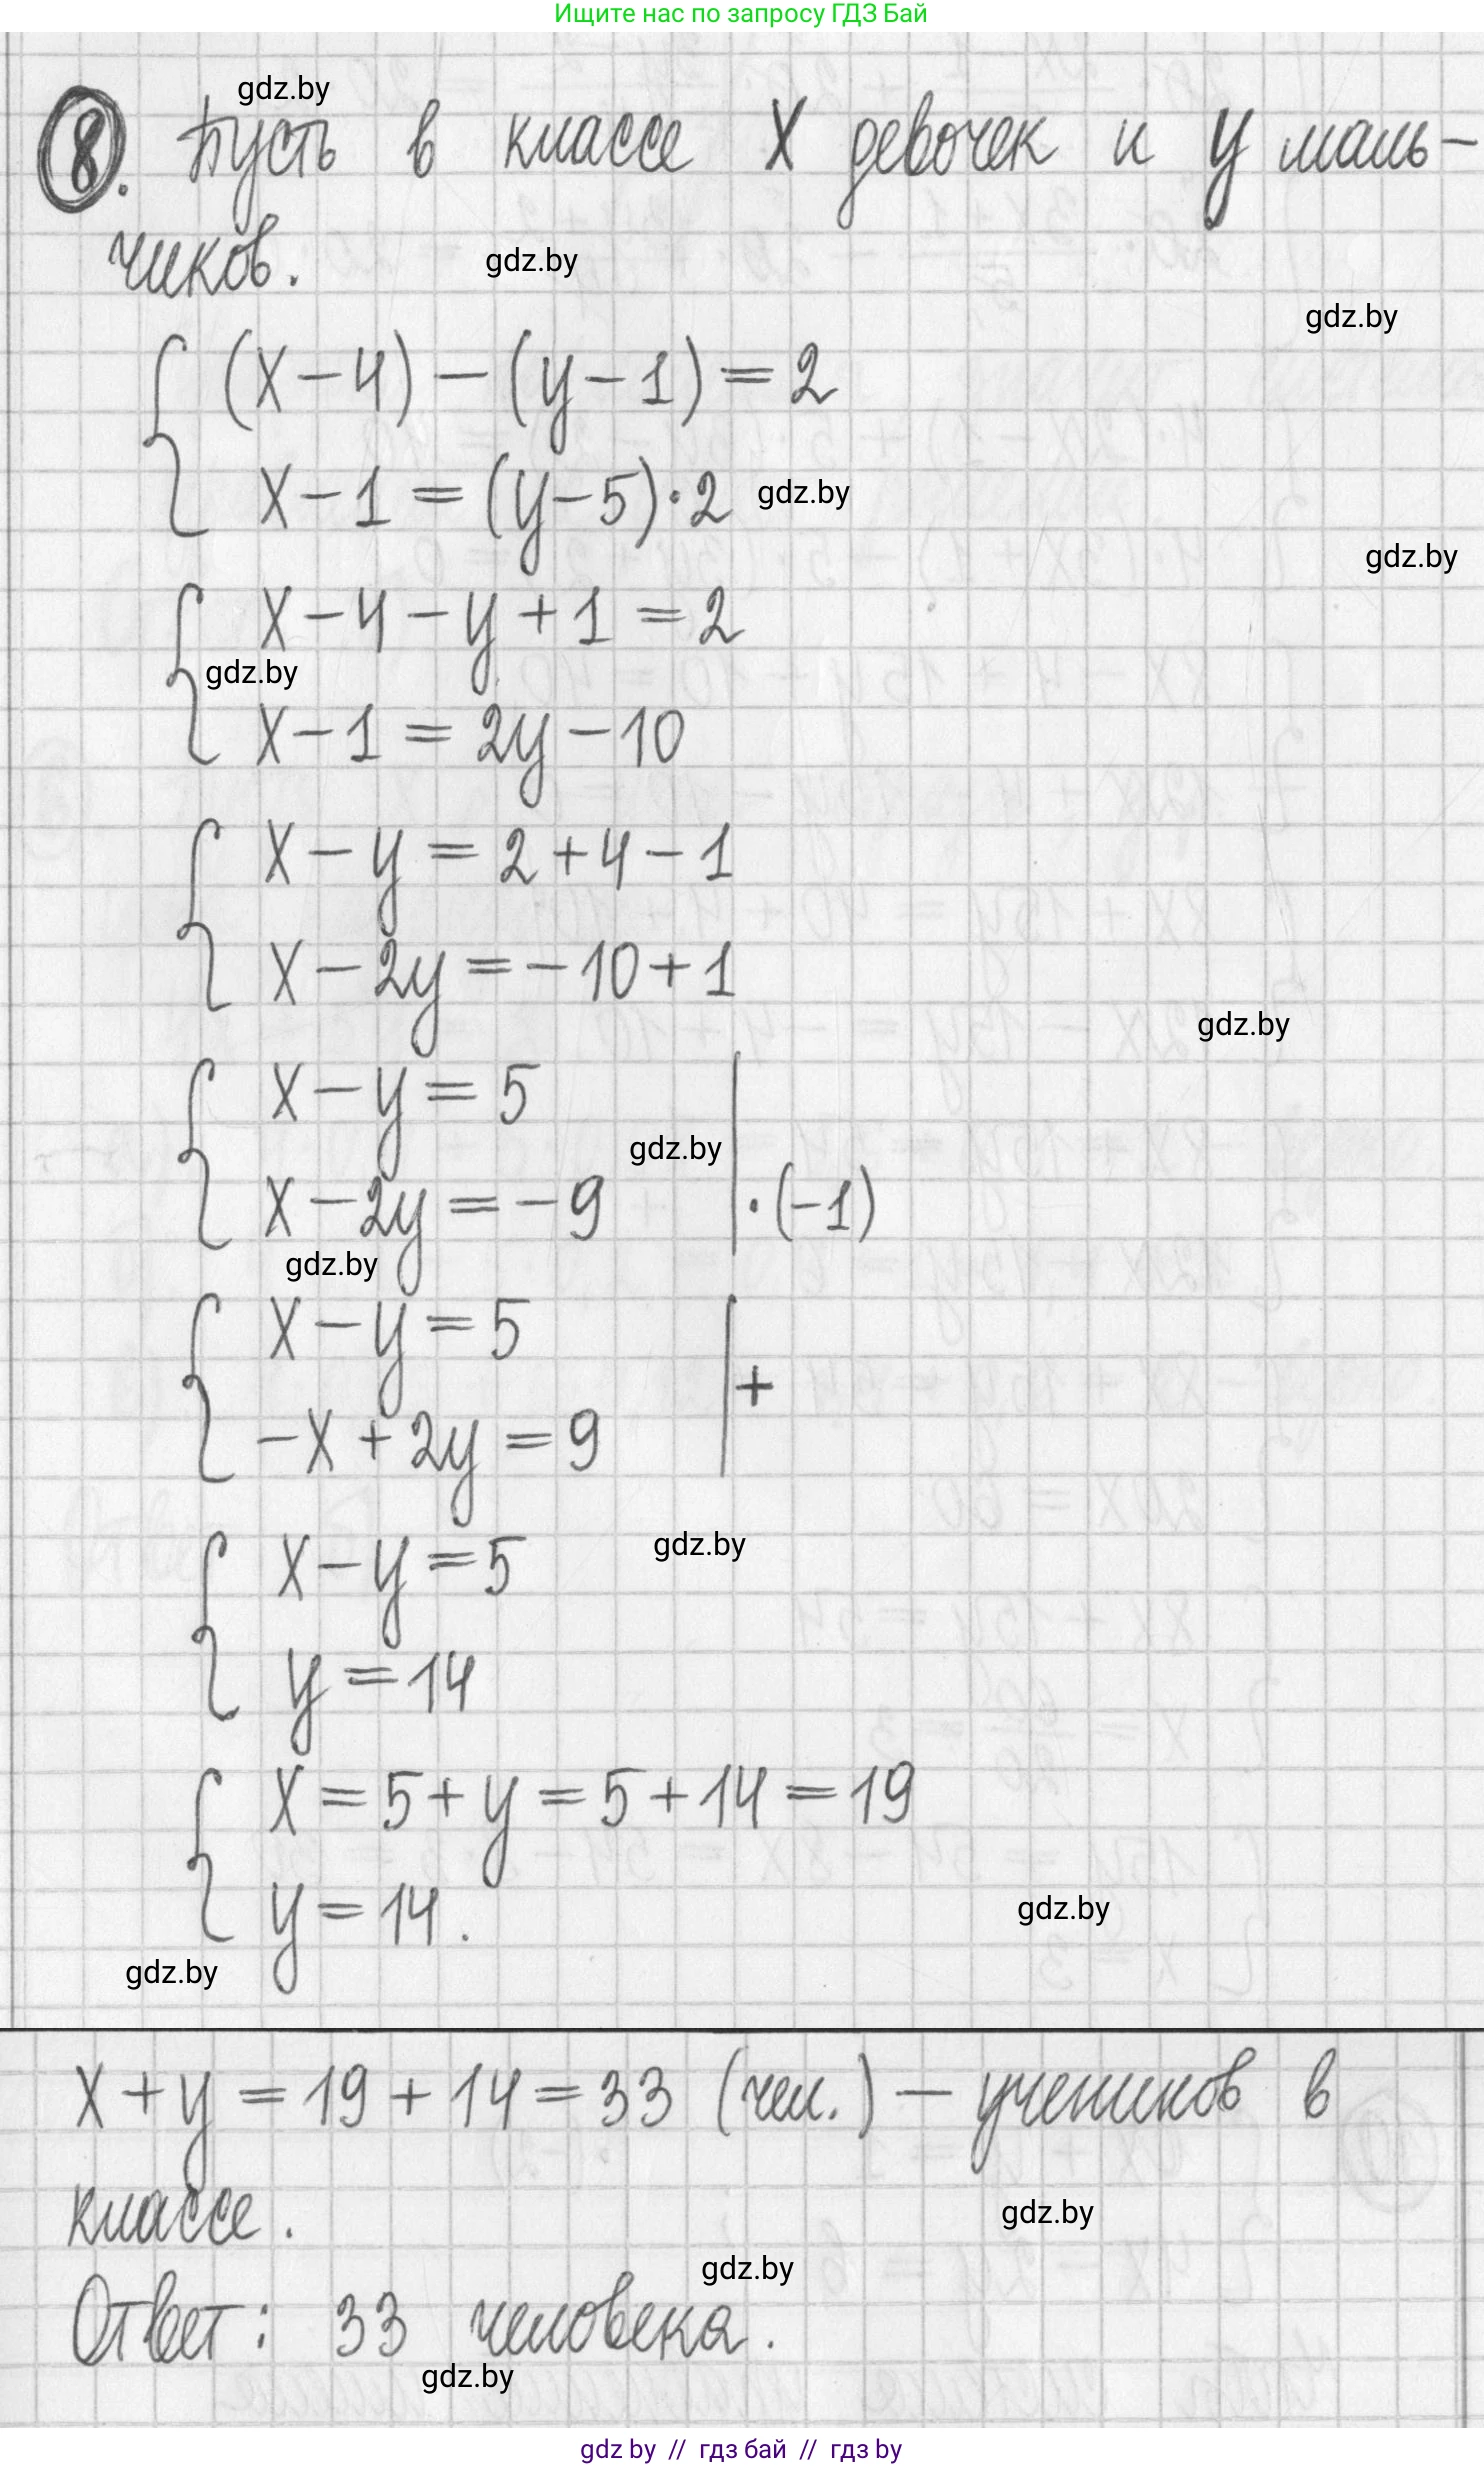 Ищите нас по запросу ГДЗ Бай
gdz.by
8. Пусть в классе X девочек и y маль-
чиков.
gdz.by
gdz.by
(x-4)-(y-1)=2
x-1=(y-5)·2
gdz.by
gdz.by
x-4-y+1=2
gdz.by
x-1=2y-10
x-y=2+4-1
x-2y=-10+1
gdz.by
x-y=5
gdz.by
x-2y=-9 |·(-1)
gdz.by
x-y=5 |+
-x+2y=9
x-y=5
gdz.by
y=14
x=5+y=5+14=19
y=14.
gdz.by
gdz.by
x+y=19+14=33 (чел.) — учеников в
классе.
gdz.by
gdz.by
Ответ: 33 человека.
gdz.by
gdz by // гдз бай // гдз by